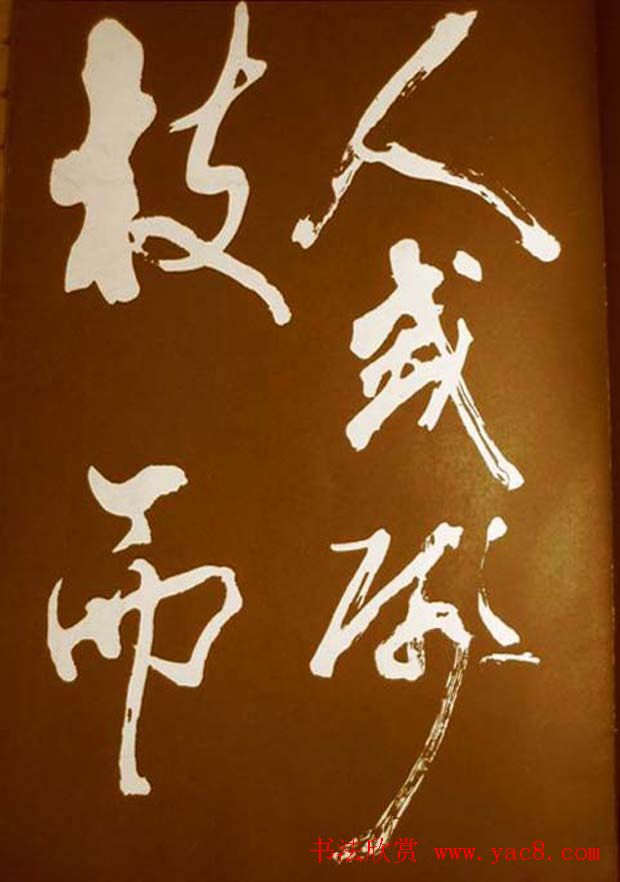 人或
枝而
书法欣赏 www.yac8.com